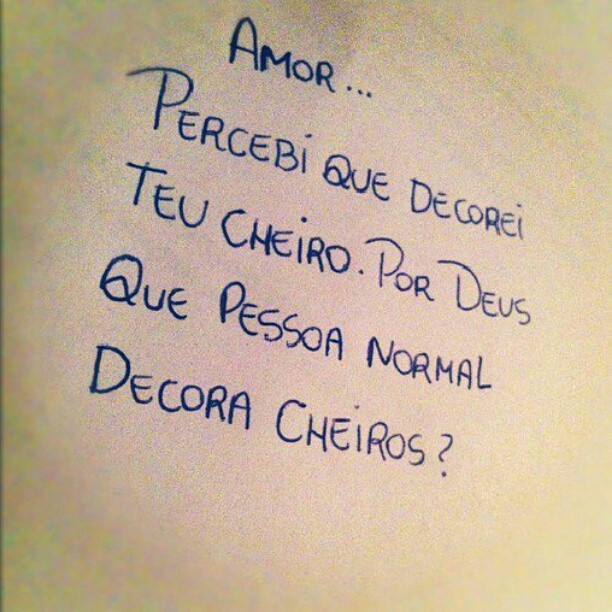 AMOR...
PERCEBI QUE DECOREI
TEU CHEIRO. POR DEUS
QUE PESSOA NORMAL
DECORA CHEIROS?